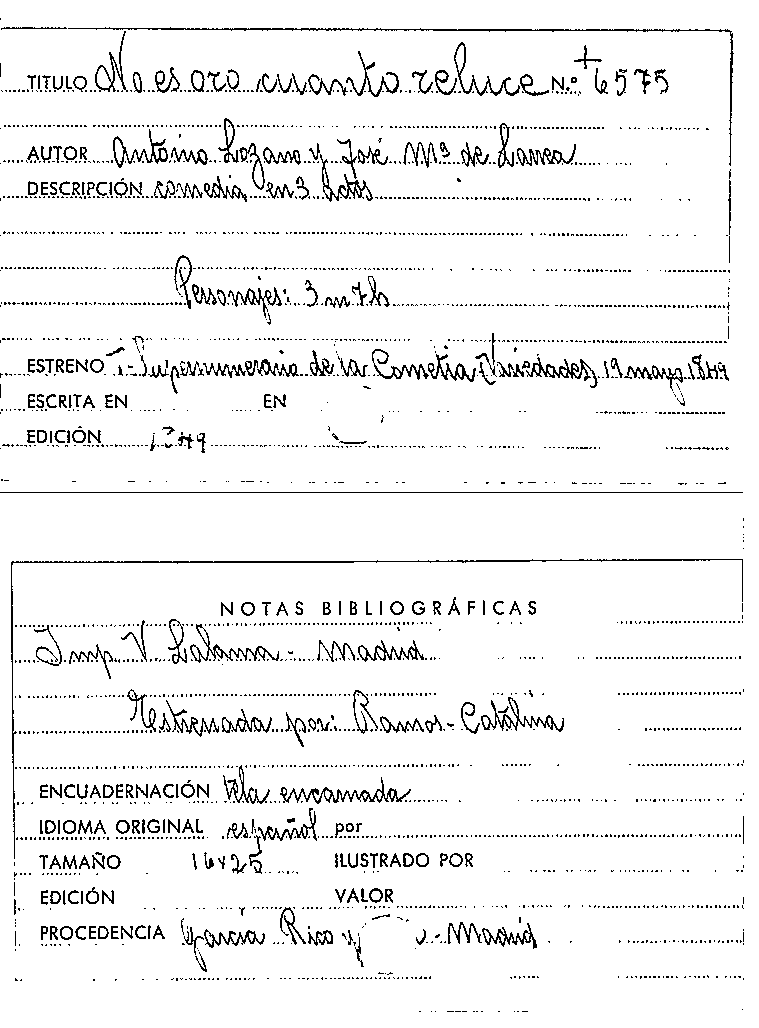 TITULO No es oro cuanto reluce N.º + 6575
AUTOR Antonio Lozano y José Mª de Larrea
DESCRIPCIÓN comedia en 3 actos
Personajes: 3 m 7 h
ESTRENO T- Supernumerario de la Cometia (Variedades) 19 mayo 1849
ESCRITA EN EN
EDICIÓN 1849
NOTAS BIBLIOGRÁFICAS
Imp V. Lalama - Madrid
Estrenada por: Ramos - Catalina
ENCUADERNACIÓN tela encarnada
IDIOMA ORIGINAL español por
TAMAÑO 16x25 ILUSTRADO POR
EDICIÓN VALOR
PROCEDENCIA García Rico y - Madrid